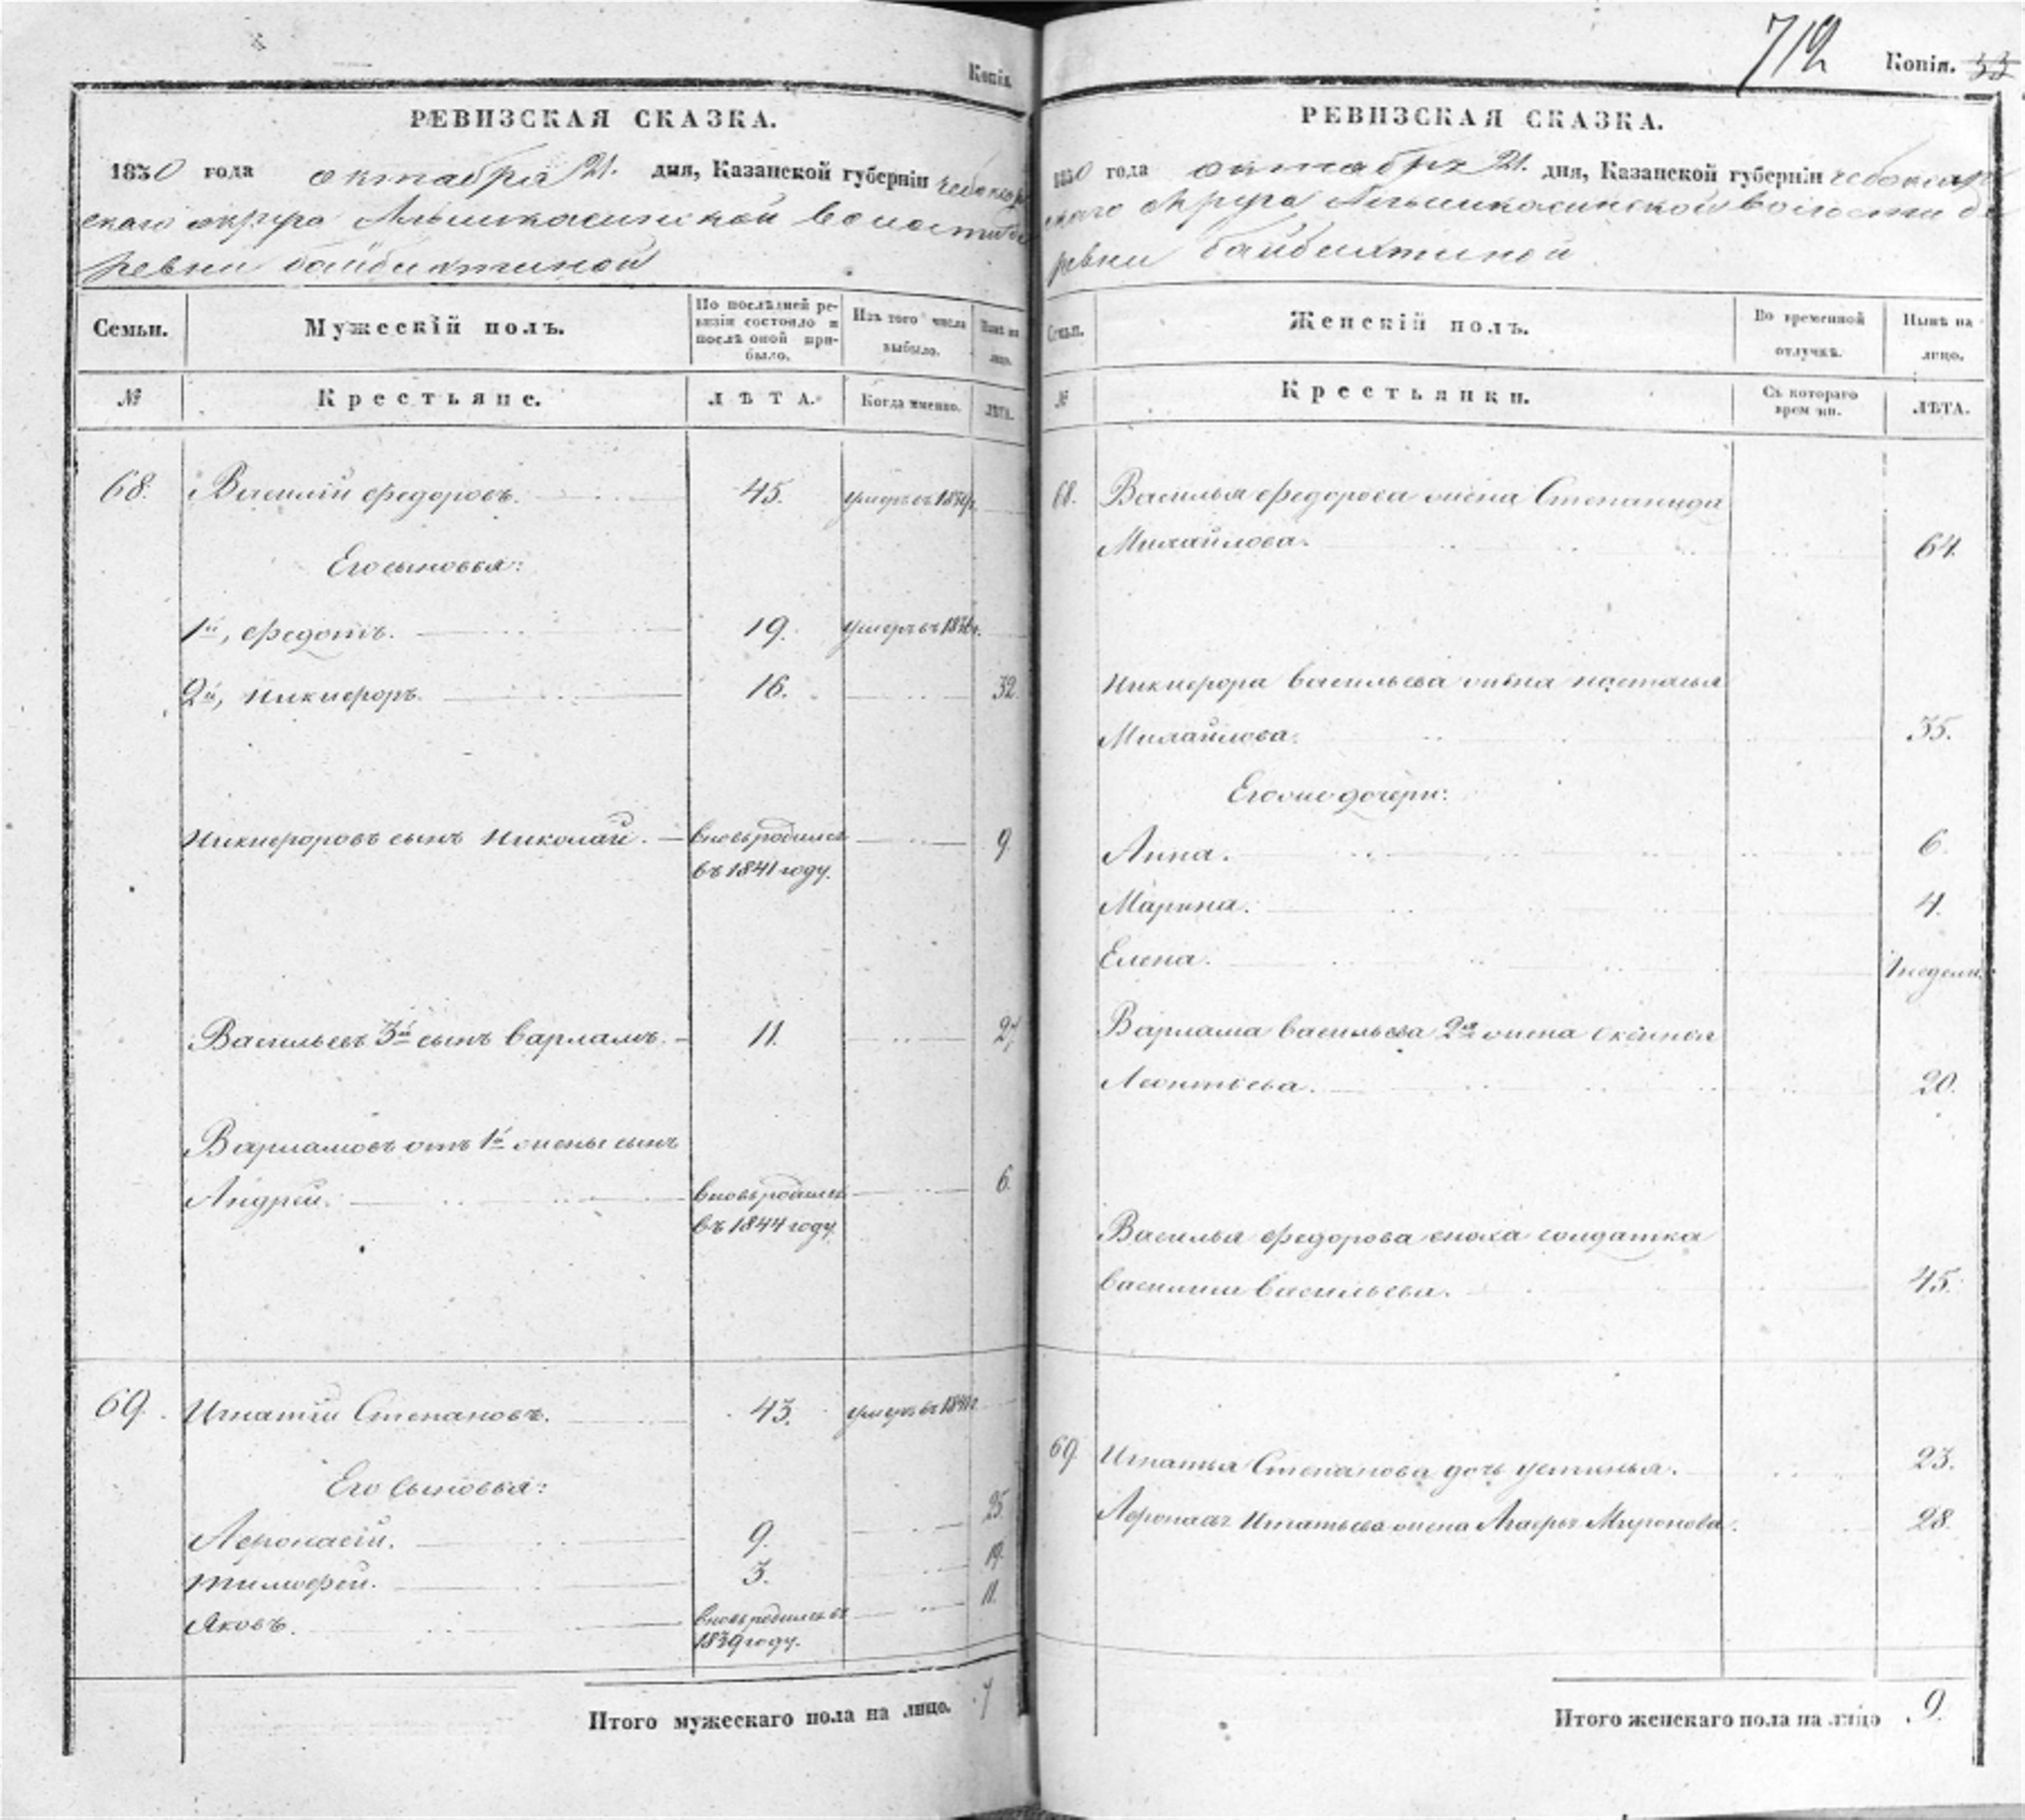 Копія.
РЕВИЗСКАЯ СКАЗКА.
1850 года октября 21. дня, Казанской губерніи Чебоксар
скаго округа Алымкасинской волости де
ревни байбихтиной
Семьи.
Мужескій полъ.
По послѣдней ре-
визіи состояло и
послѣ оной при-
было.
Изъ того числа
выбыло.
Нынѣ на
лицо.
№
Крестьяне.
ЛѢТА.
Когда именно.
ЛѢТА.
68. Василій Федоровъ. 45. умеръ въ г.
Его сыновья:
1й, Федотъ. 19. умеръ въ 1836г.
2й, Никифоръ. 16. 32.
Никифоровъ сынъ Николай. вновь родился 9.
въ 1841 году.
Васильевъ 3й сынъ Варламъ. 11. 27.
Варламовъ отъ 1й жены сынъ
Андрей. вновь родился 6.
въ 1844 году.
69. Игнатій Степановъ. 43. умеръ въ г.
Его сыновья:
Афонасій. 9. 25.
Тимофей. 3. 19.
Яковъ. вновь родился въ 11.
1839 году.
Итого мужескаго пола на лицо. 7
712
Копія. 33
РЕВИЗСКАЯ СКАЗКА.
1850 года октября 21. дня, Казанской губерніи Чебоксар
скаго округа Алымкасинской волости де
ревни байбихтиной
Семьи.
Женскій полъ.
Во временной
отлучкѣ.
Нынѣ на
лицо.
№
Крестьянки.
Съ котораго
времени.
ЛѢТА.
68. Василья Федорова жена Степанида
Михайлова. 64.
Никифора Васильева жена Настасья
Михайлова. 35.
Его же дочери:
Анна. 6.
Марина. 4.
Елена. 1 недели
Варлама Васильева 2я жена Оксинья
Леонтьева. 20.
Василья Федорова сноха солдатка
Василиса Васильева. 45.
69. Игнатья Степанова дочь Устинья. 23.
Афонасья Игнатьева жена Агафья Миронова. 28.
Итого женскаго пола на лицо 9.